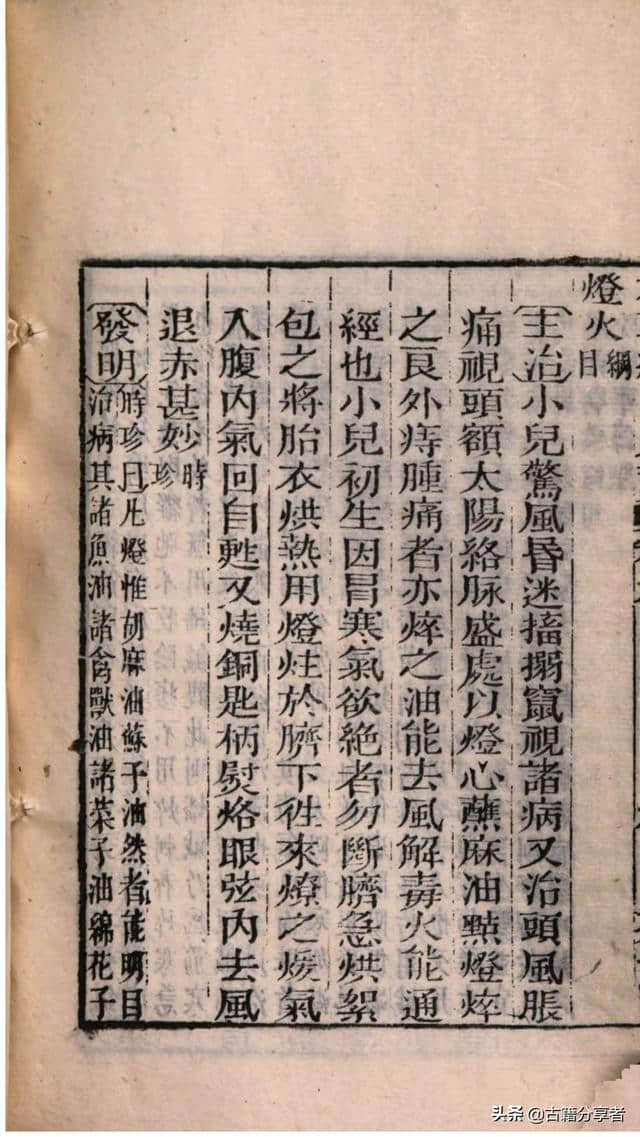 燈火綱目
主治小兒驚風昏迷搐搦竄視諸病又治頭風脹
痛視頭額太陽絡脉盛處以燈心蘸麻油㸃燈焠
之良外痔腫痛者亦焠之油能去風解毒火能通
經也小兒初生因冒寒氣欲絶者勿斷臍急烘絮
包之將胎衣烘熱用燈炷於臍下徃來燎之煖氣
入腹內氣回自甦又燒銅匙柄熨烙眼弦內去風
退赤甚妙時珍
發明時珍曰凡燈惟胡麻油蘇子油然者能明目
治病其諸魚油諸禽獸油諸菜子油綿花子
头条 @古籍分享者